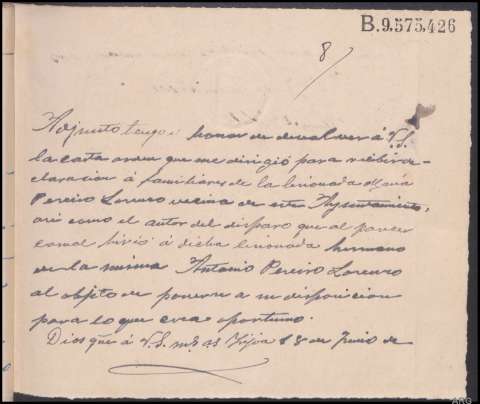 B.9,575,426
8
Adjunto tengo honor de devolver á V.S.
la carta orden que me dirigió para recibir de-
claracion á familiares de la lesionada María
Pereiro Lorenzo vecina de este Ayuntamiento,
asi como el autor del disparo que al parecer
casual hirió á dicha lesionada hermano
de la misma Antonio Pereiro Lorenzo
al objeto de ponerse a su disposicion
para lo que crea oportuno.
Dios gue á V.S. ms. as. 18 de Junio de